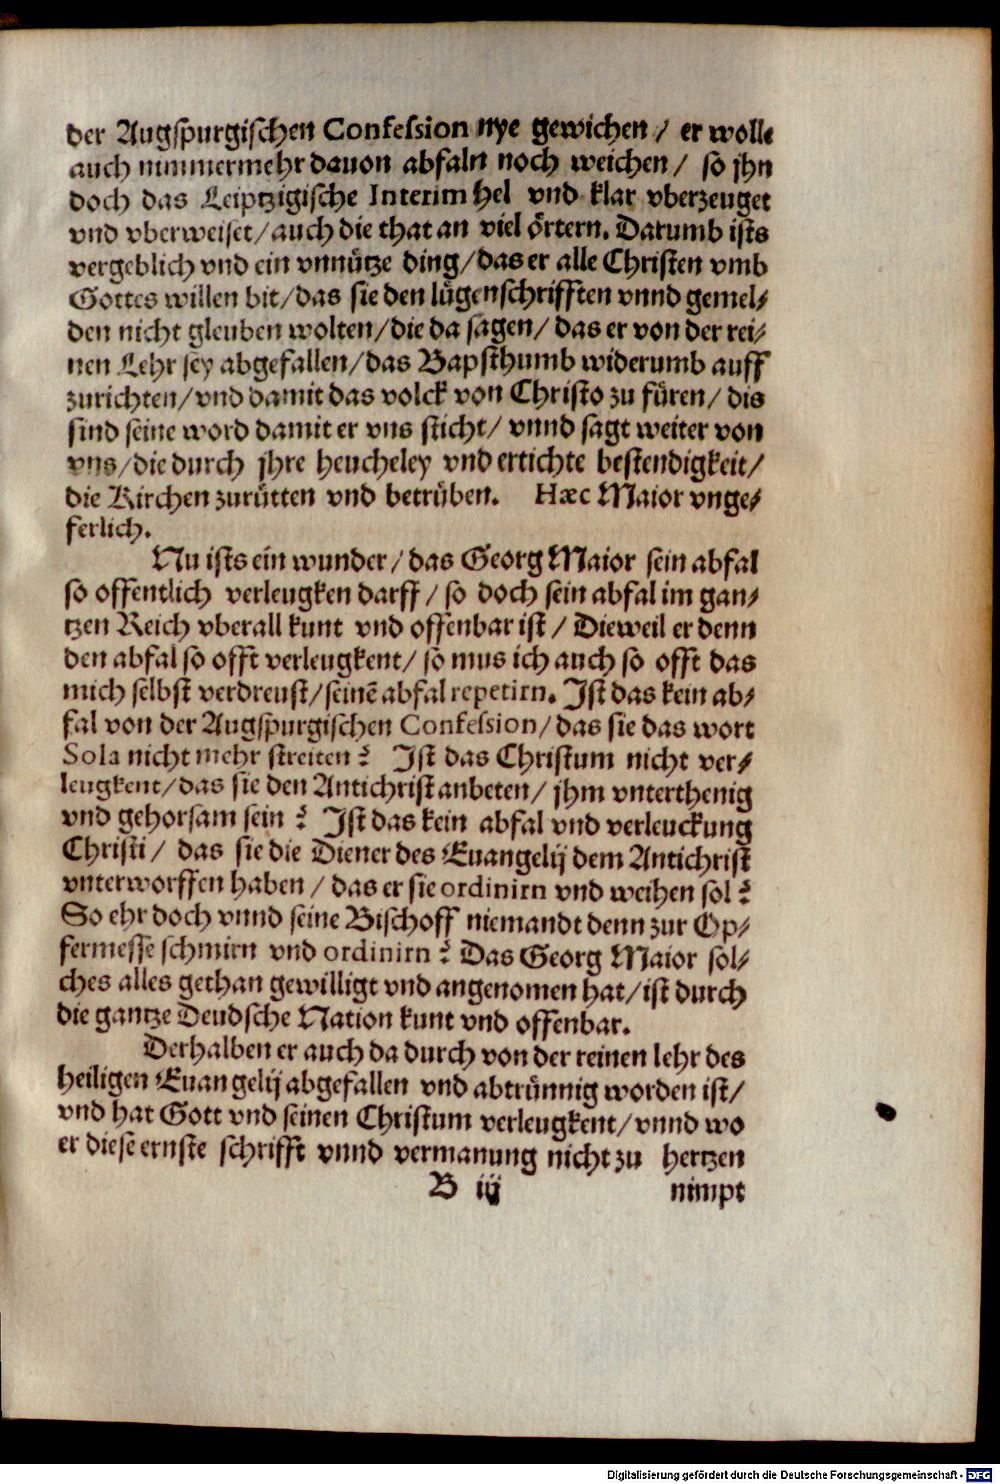 der Augspurgischen Confession nye gewichen / er wolle
auch nimmermehr dauon abfaln noch weichen / so jhn
doch das Leiptzigische Interim hel vnd klar vberzeuget
vnd vberweiset / auch die that an viel örtern. Darumb ists
vergeblich vnd ein vnnütze ding / das er alle Christen vmb
Gottes willen bit / das sie den lügenschrifften vnnd gemel⸗
den nicht gleuben wolten / die da sagen / das er von der rei⸗
nen Lehr sey abgefallen / das Bapsthumb widerumb auff
zurichten / vnd damit das volck von Christo zu füren / dis
sind seine word damit er vns sticht / vnnd sagt weiter von
vns / die durch jhre heucheley vnd ertichte bestendigkeit /
die Kirchen zurütten vnd betrüben. Hæc Maior vnge⸗
ferlich.
Nu ists ein wunder / das Georg Maior sein abfal
so offentlich verleugken darff / so doch sein abfal im gan⸗
tzen Reich vberall kunt vnd offenbar ist / Dieweil er denn
den abfal so offt verleugkent / so mus ich auch so offt das
mich selbst verdreust / seinē abfal repetirn. Ist das kein ab⸗
fal von der Augspurgischen Confession / das sie das wort
Sola nicht mehr streiten? Ist das Christum nicht ver⸗
leugkent / das sie den Antichrist anbeten / jhm vnterthenig
vnd gehorsam sein? Ist das kein abfal vnd verleuckung
Christi / das sie die Diener des Euangelij dem Antichrist
vnterworffen haben / das er sie ordinirn vnd weihen sol?
So ehr doch vnnd seine Bischoff niemandt denn zur Op⸗
fermesse schmirn vnd ordinirn? Das Georg Maior sol⸗
ches alles gethan gewilligt vnd angenomen hat / ist durch
die gantze Deudsche Nation kunt vnd offenbar.
Derhalben er auch da durch von der reinen lehr des
heiligen Euangelij abgefallen vnd abtrünnig worden ist /
vnd hat Gott vnd seinen Christum verleugkent / vnnd wo
er diese ernste schrifft vnnd vermanung nicht zu hertzen
B iij nimpt
Digitalisierung gefördert durch die Deutsche Forschungsgemeinschaft - DFG